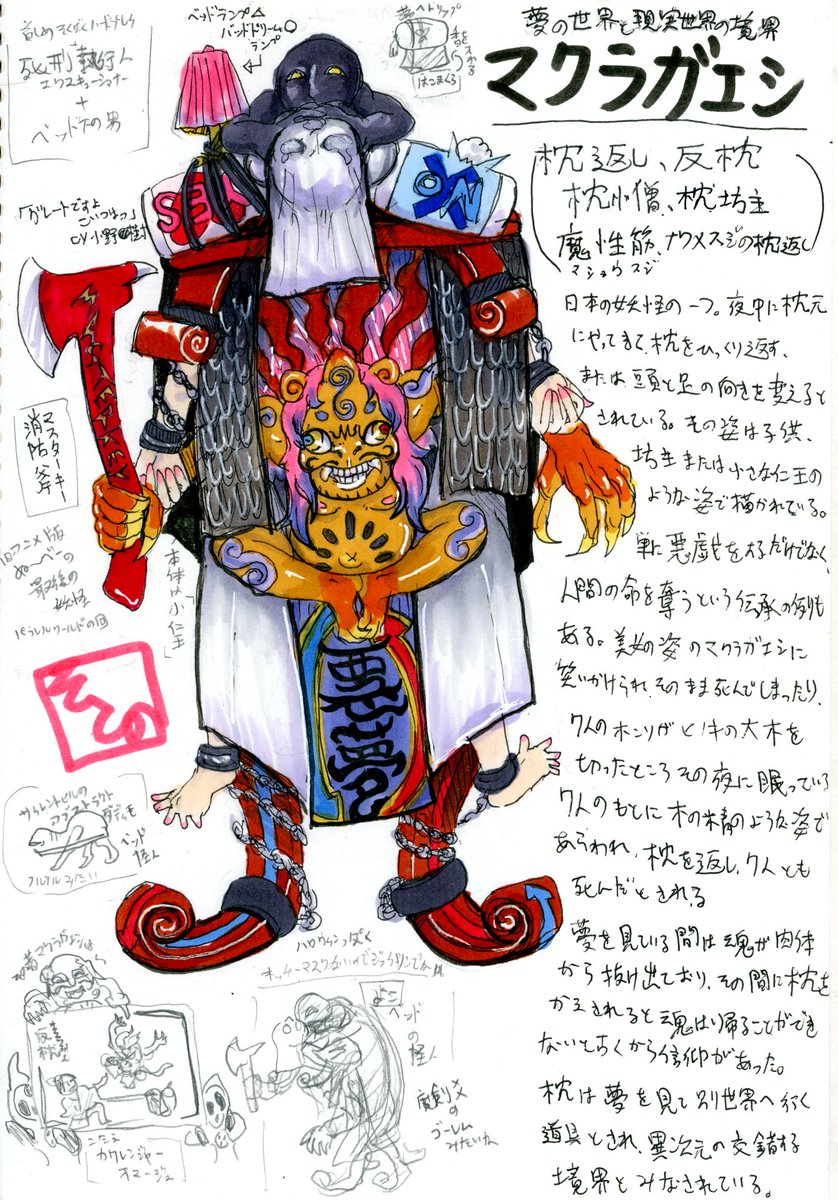 夢の世界と現実世界の境界
マクラガエシ
枕返し、反枕
枕小僧、枕坊主
魔性筋、ナウメスジの枕返し
マショウスジ
日本の妖怪の一つ。夜中に枕元
にやってきて、枕をひっくり返す、
または頭と足の向きを変えると
されている。その姿は子供、
坊主または小さな仁王の
ような姿で描かれている。
単に悪戯をするだけでなく、
人間の命を奪うという伝承の例も
ある。美女の姿のマクラガエシに
笑いかけられ、そのまま死んでしまったり、
7人のがヒノキの大木を
切ったところその夜に眠っている
7人のもとに木の精のような姿で
あらわれ、枕を返し、7人とも
死んだとされる
夢を見ている間は魂が肉体
から抜け出ており、その間に枕を
かえされると魂は帰ることができ
ないと古くから信仰があった。
枕は夢を見て別世界へ行く
道具とされ、異次元の交錯する
境界とみなされている。
ベッドランプ△
バッドドリーム○
ランプ
はこまくら
死刑執行人
エクスキューショナー
+
ベッド下の男
「グレートですよ
こいつはっ」
SEX
ON
マスターキー
消防斧
旧アニメ版
ぬ〜べ〜の
最後の
妖怪
パラレルワールドの回
本体は「小仁王」
サイレントヒルの
アブストラクト
ダディも
ベッド
怪人
ハロウィンっぽく
よこ
ベッド
の怪人
ゴーレム
みたいな
カクレンジャー
オマージュ